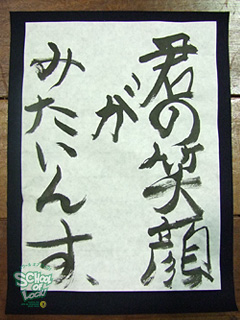 君の笑顔
が
みたいんす、
SCHOOL
OF
LOCK!